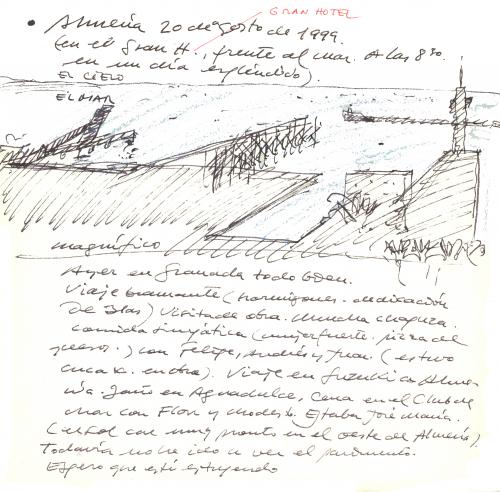 GRAN HOTEL
• Almería 20 de agosto de 1999.
(en el Gran H., frente al mar. A las 8 30
en un día espléndido).
EL CIELO
EL MAR
magnífico
Ayer en Granada todo bien.
Viaje (hormigones. dedicación
de Blas) Visita de obra. Mucha chapuza.
comida simpática (mujer fuerte. pizza del
) con Felipe, Andrés y Juan. (estuvo
en obra). Viaje en Suzuki a Alme-
ría. Baño en Aguadulce, Cena en el Club de
Mar con Flor y Modesto. Estaba José María.
( sol con muy pronto en el oeste de Almería).
Todavía no he ido a ver el pavimento.
Espero que esté estupendo